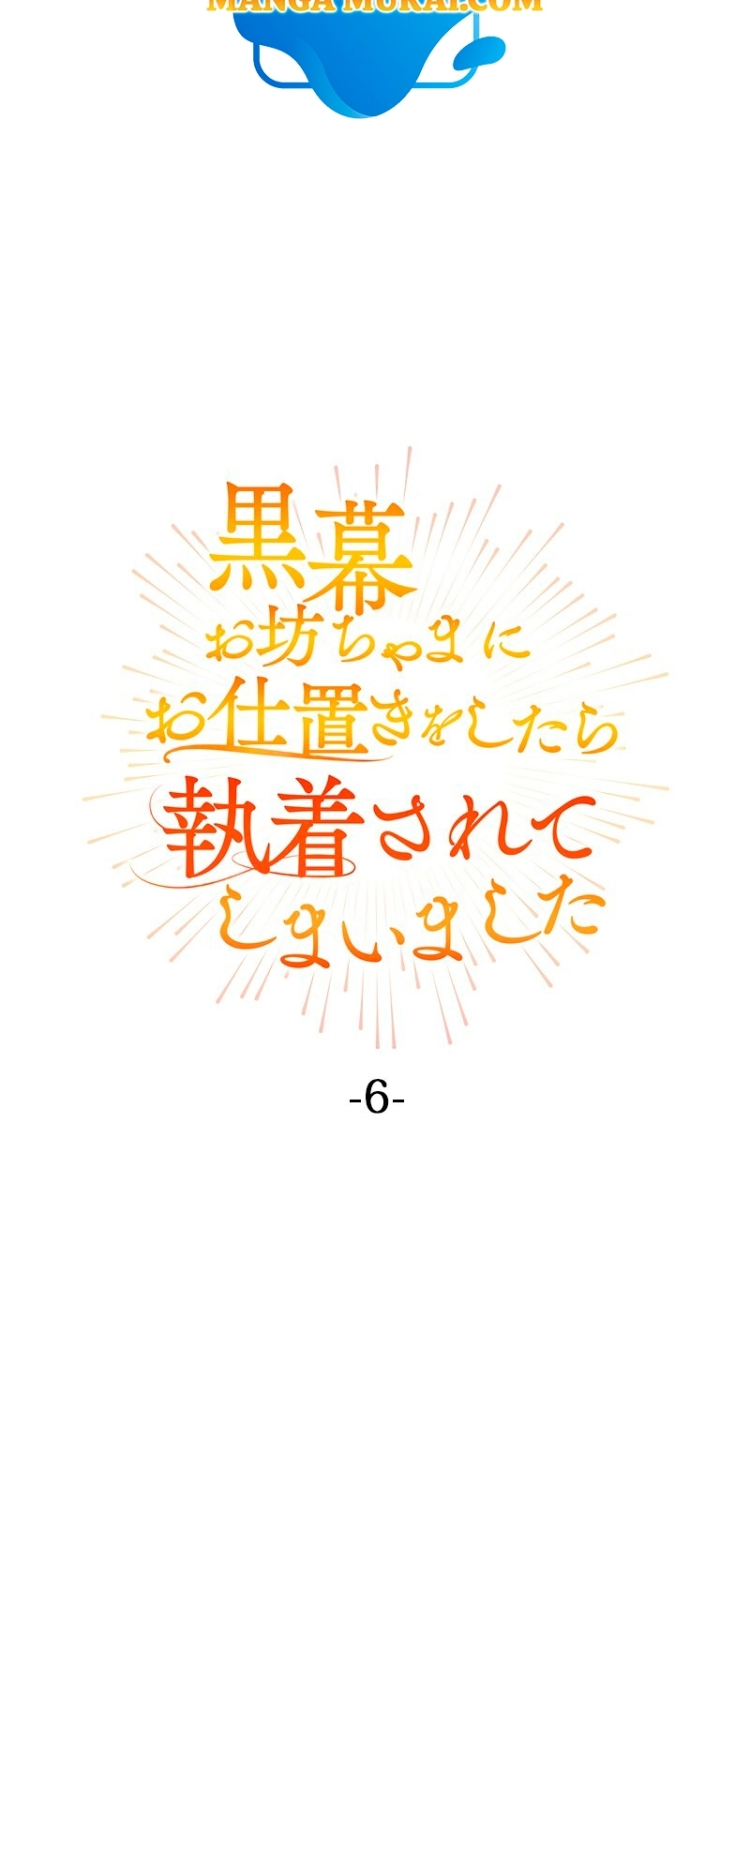 MANGA MURAI.COM
黒幕
お坊ちゃまに
お仕置きをしたら
執着されて
しまいました
-6-